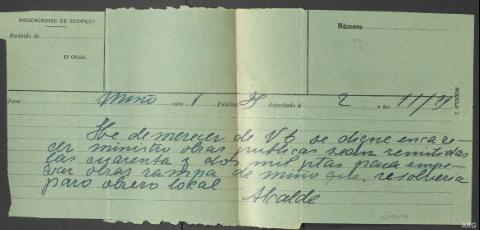 INDICACIONES DE SERVICIO
Recibido de
El Oficial,
Número
Para Miño núm. 1 Palabras 38 depositado el 2 a las 11/
MODELO 2
He de merecer de V E se digne encare
cer ministro obras publicas sean remitidas
las cuarenta y dos mil ptas para empe
zar obras rampa de miño que resolveria
paro obrero local
Alcalde
ARG